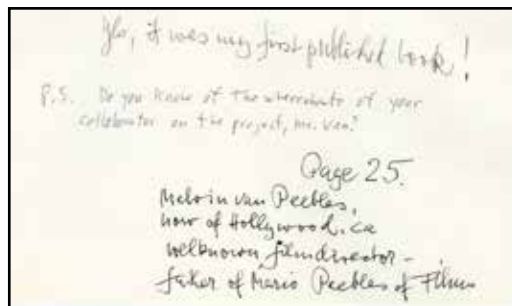 Yes, it was my first published book!
P.S. Do you know of the wherabouts of your
collaborator on the project, Mr. Van?
Page 25.
Melvin van Peebles,
now of Hollywood. Ca
welknown filmdirector -
father of Mario Peebles of Films